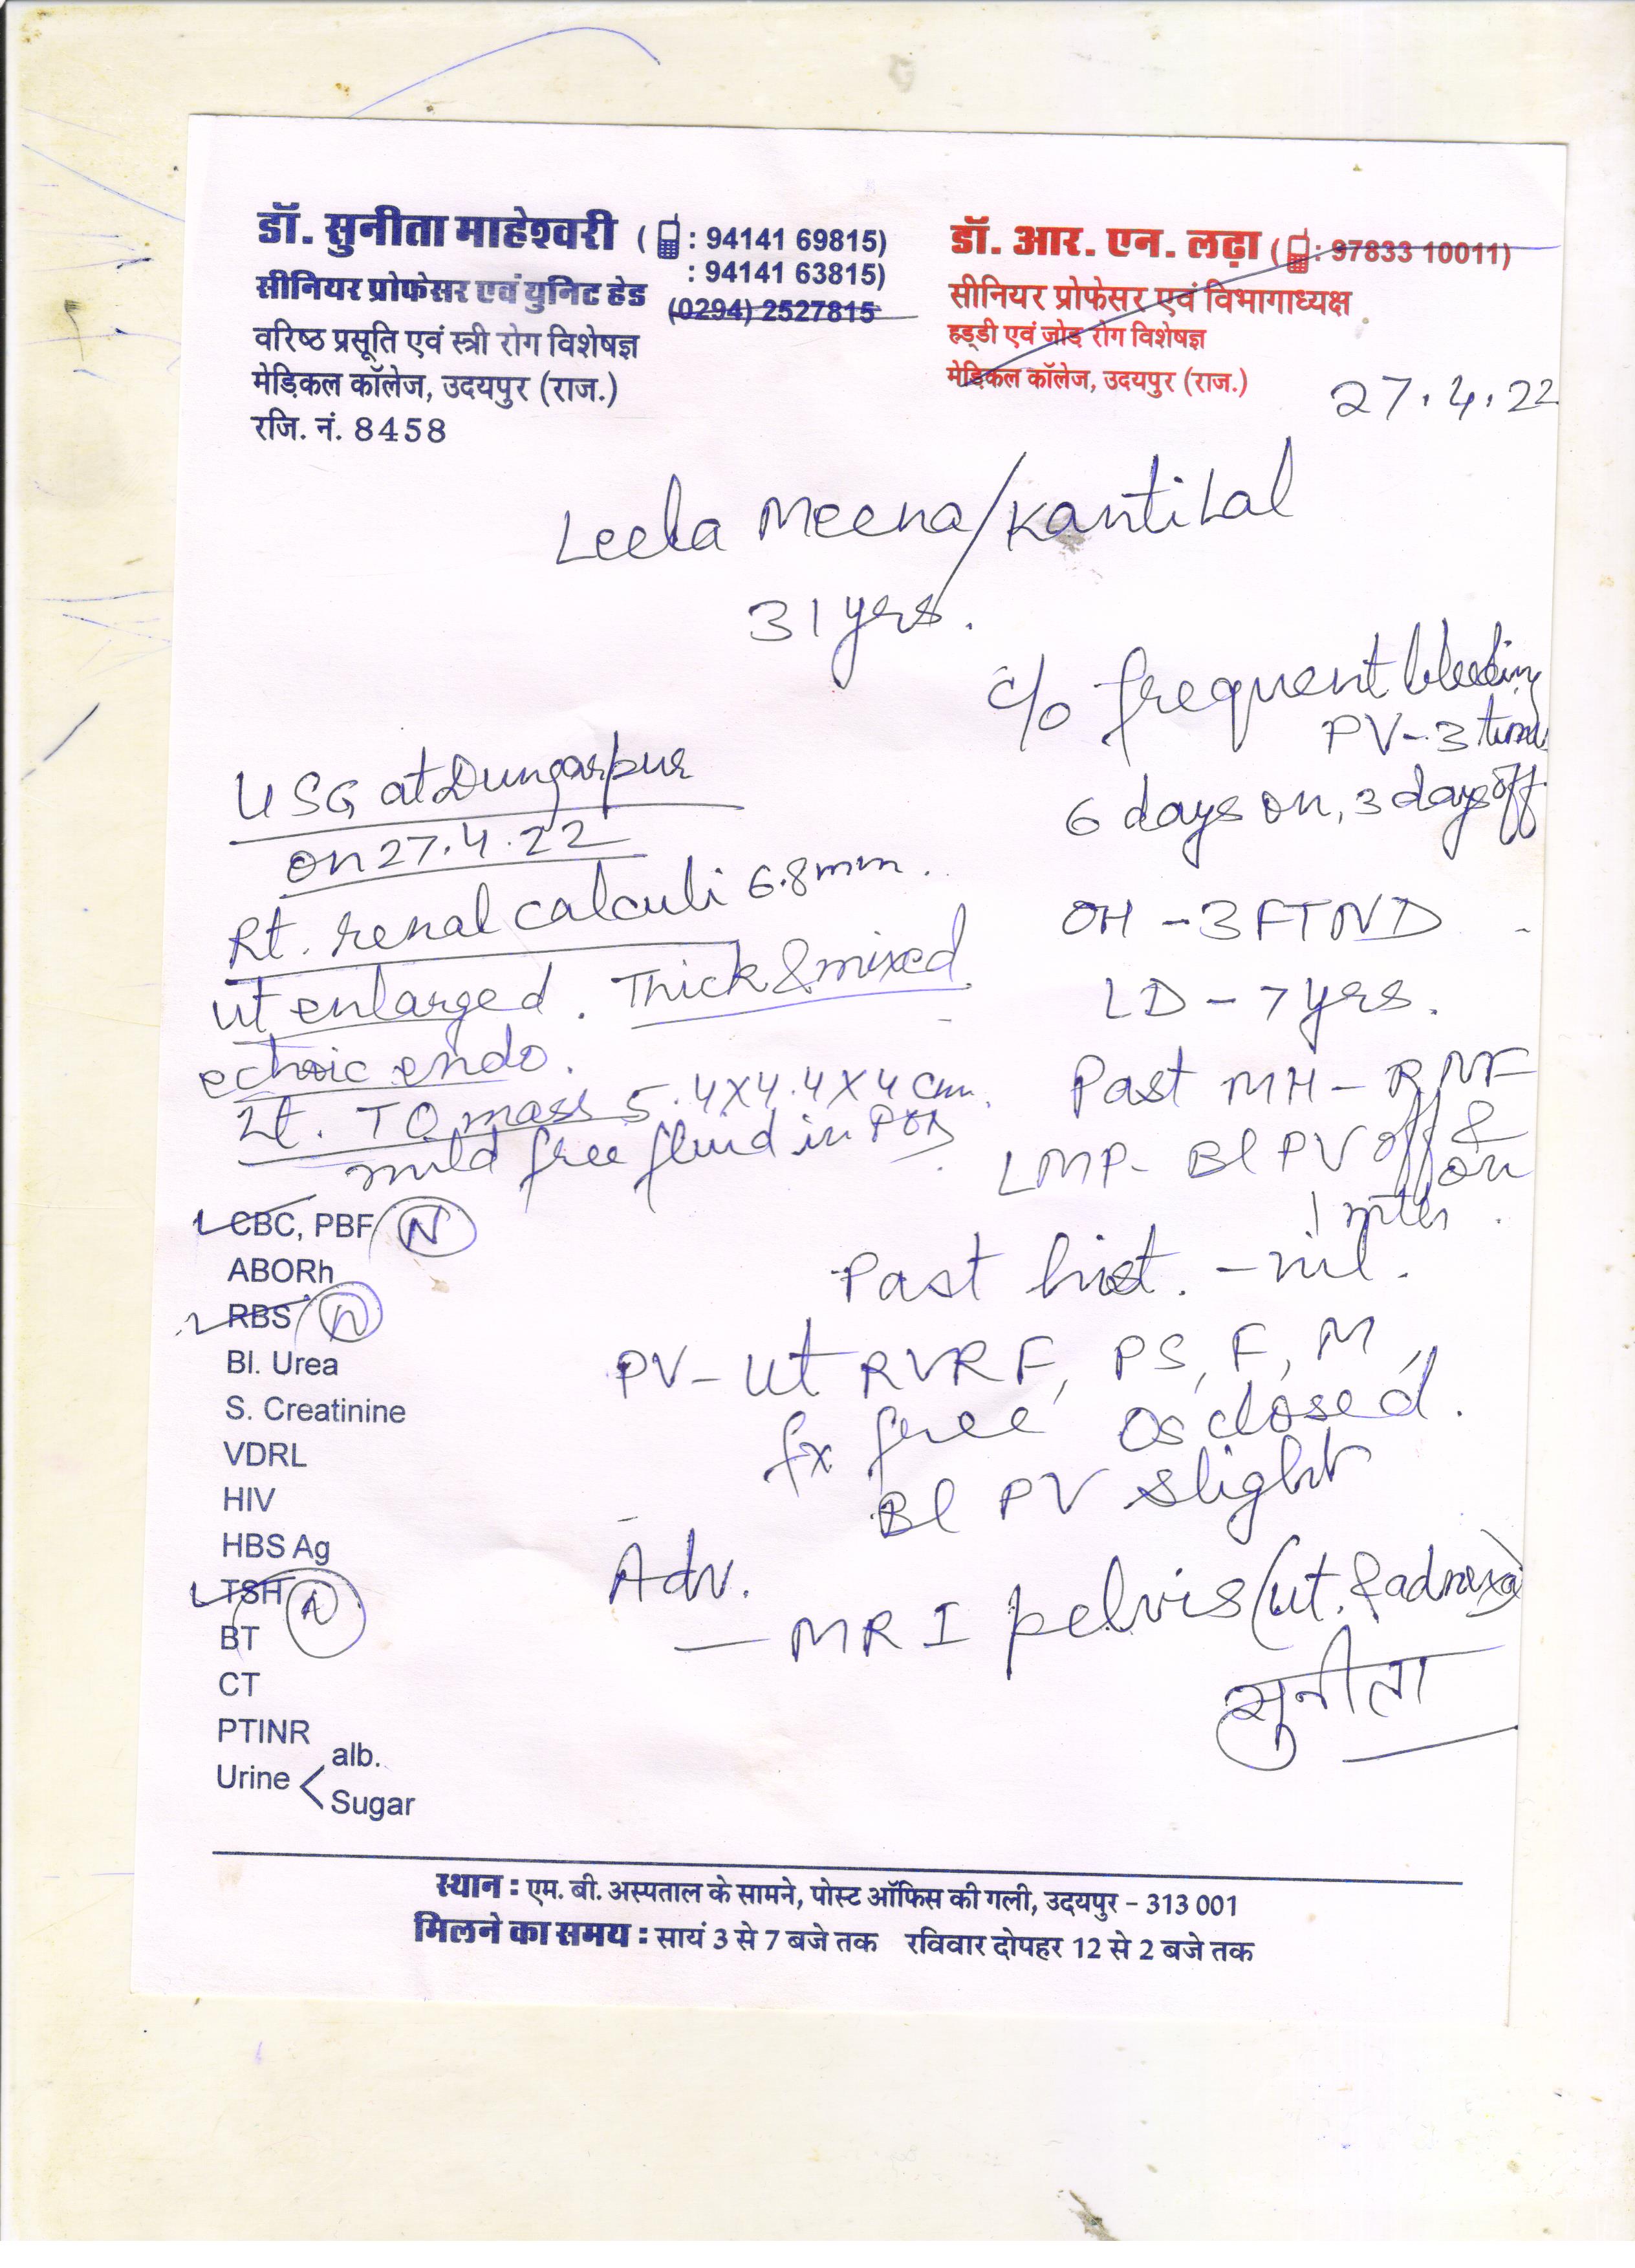 डॉ. सुनीता माहेश्वरी ( : 94141 69815)
: 94141 63815)
सीनियर प्रोफेसर एवं युनिट हेड (0294) 2527815
वरिष्ठ प्रसूति एवं स्त्री रोग विशेषज्ञ
मेडि़कल कॉलेज, उदयपुर (राज.)
रजि. नं. 8458
डॉ. आर. एन. लढ़ा ( : 97833 10011)
सीनियर प्रोफेसर एवं विभागाध्यक्ष
हड्डी एवं जोड़ रोग विशेषज्ञ
मेडि़कल कॉलेज, उदयपुर (राज.)
27.4.22
Leela Meena/Kantilal
31 yrs.
c/o frequent bleeding
PV-3 time
6 days on, 3 days off
OH - 3 FTND
LD - 7 yrs.
Past MH - RNF
LMP- Bl PV off &
on
1 mth
USG at Dungarpur
on 27.4.22
Rt. renal calculi 6.8mm.
ut enlarged. Thick & mixed
echoic endo.
Lt. TO mass 5.4x4.4x4 cm.
mild free fluid in POD
CBC, PBF N
ABORh
RBS N
Bl. Urea
S. Creatinine
VDRL
HIV
HBS Ag
TSH N
BT
CT
PTINR
Urine < alb.
Sugar
Past hist. - nil.
PV- Ut RVRF, PS, F, M,
fx free Os closed.
Bl PV slight
Adv.
- MRI pelvis (ut. & adnexa)
सुनीता
स्थान : एम. बी. अस्पताल के सामने, पोस्ट ऑफिस की गली, उदयपुर - 313 001
मिलने का समय : सायं 3 से 7 बजे तक रविवार दोपहर 12 से 2 बजे तक